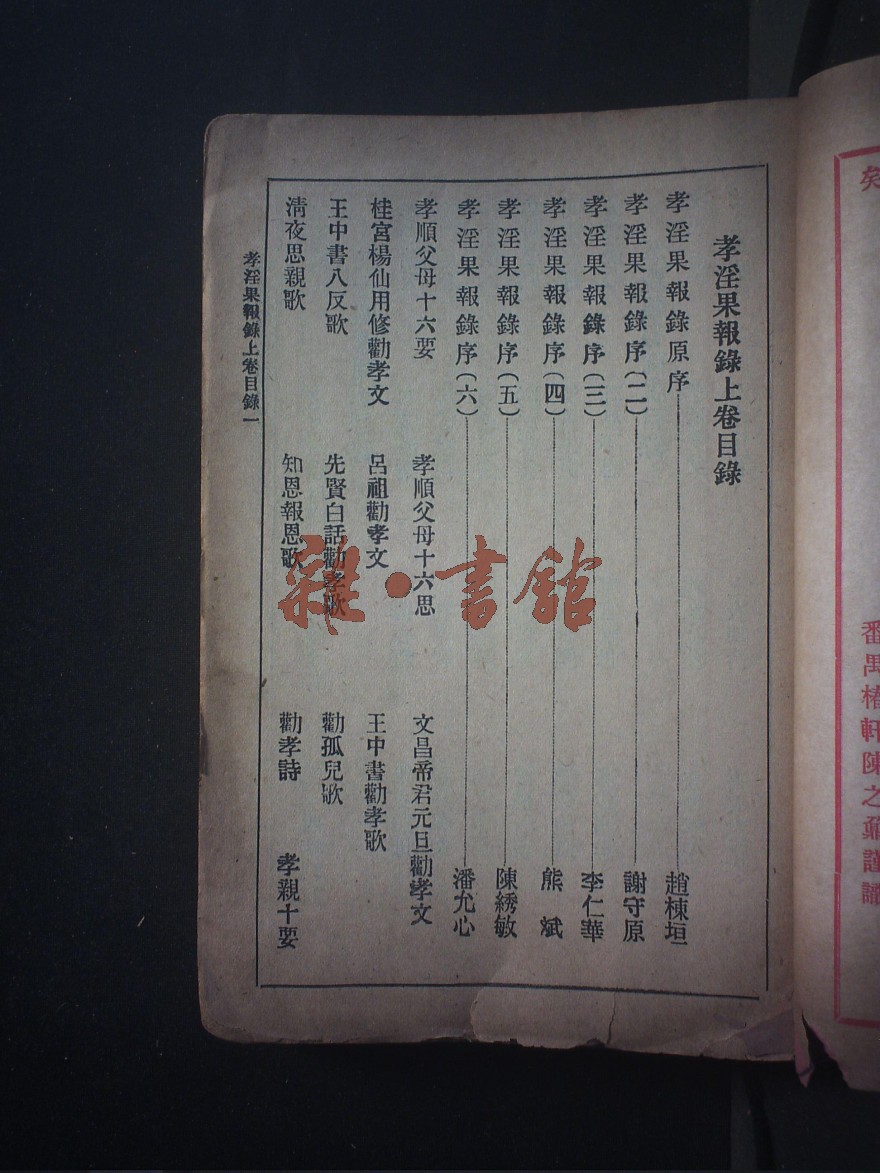 矣
番禺椿軒陳之鼐謹識
孝淫果報錄上卷目錄
孝淫果報錄原序 趙棟垣
孝淫果報錄序(二) 謝守原
孝淫果報錄序(三) 李仁華
孝淫果報錄序(四) 熊斌
孝淫果報錄序(五) 陳綉敏
孝淫果報錄序(六) 潘允心
孝順父母十六要 孝順父母十六思 文昌帝君元旦勸孝文
桂宮楊仙用修勸孝文 呂祖勸孝文 王中書勸孝歌
王中書八反歌 先賢白話勸孝歌 勸孤兒歌
淸夜思親歌 知恩報恩歌 勸孝詩 孝親十要
孝淫果報錄上卷目錄一
雜·書館